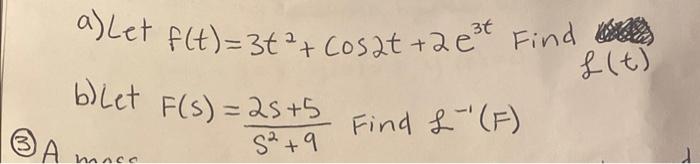 a) Let f(t) = 3t² + cos2t + 2e³ᵗ Find
£(t)
b) Let F(s) = 2s+5 / s²+9 Find £⁻¹(F)
③ A mass